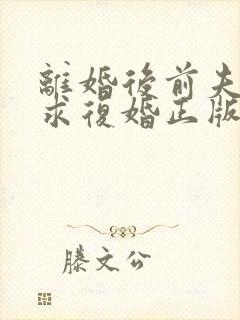 離婚後前夫
求復婚正版
滕文公